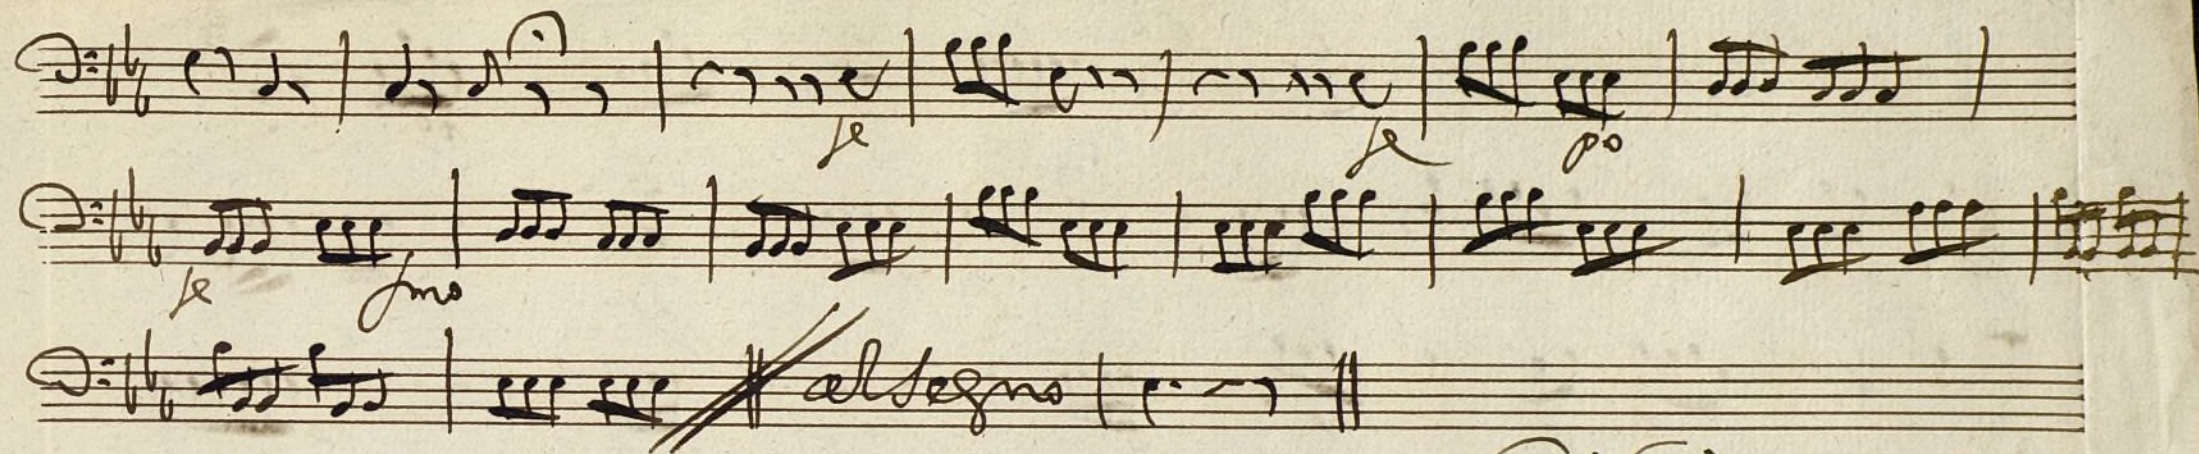 fe fe po
fe fmo
al Segno